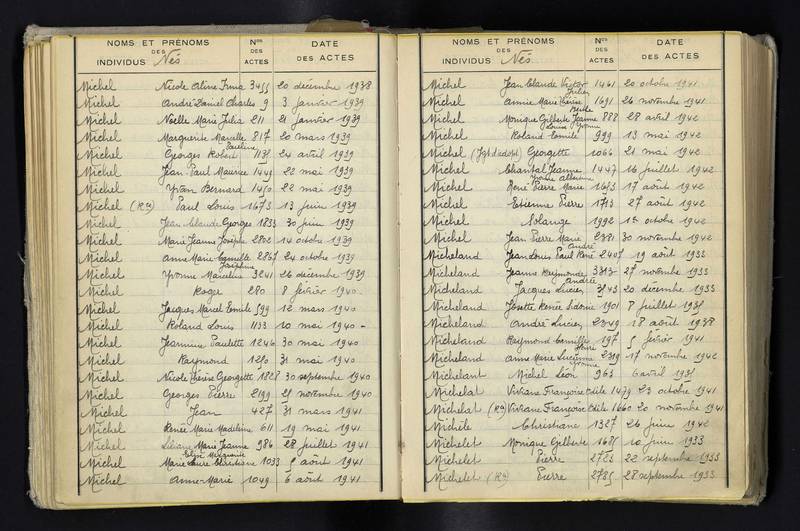 NOMS ET PRÉNOMS
DES
INDIVIDUS Nés
Nos
DES
ACTES
DATE
DES ACTES
Michel Nicole Aline Irma 3455 20 décembre 1938
Michel André Daniel Charles 9 3 janvier 1939
Michel Noëlle Marie Julia 211 21 janvier 1939
Michel Marguerite Marcelle 817 20 mars 1939
Pauline
Michel Georges Robert 1138 24 avril 1939
Michel Jean Paul Maurice 1449 22 mai 1939
Michel Yvan Bernard 1450 22 mai 1939
Michel (Ron) Paul Louis 1673 13 juin 1939
Michel Jean Claude Georges 1833 30 juin 1939
Michel Marie Jeanne Josèphe 2802 14 octobre 1939
Michel Anne Marie Camille 2867 24 octobre 1939
Joséphine
Michel Yvonne Marceline 3241 26 décembre 1939
Michel Roger 280 8 février 1940
Michel Jacques Marcel Emile 599 12 mars 1940
Michel Roland Louis 1133 10 mai 1940
Michel Jeannine Paulette 1246 30 mai 1940
Michel Raymond 1250 31 mai 1940
Michel Nicole Thérèse Georgette 1828 30 septembre 1940
Michel Georges Pierre 2199 25 novembre 1940
Michel Jean 427 31 mars 1941
Michel Renée Marie Madeleine 611 19 mai 1941
Michel Liliane Marie Jeanne 986 28 juillet 1941
Michel Marie Laure Christiane 1033 5 août 1941
Michel Anne-Marie 1049 6 août 1941
NOMS ET PRÉNOMS
DES
INDIVIDUS Nés
Nos
DES
ACTES
DATE
DES ACTES
Michel Jean Claude Victor 1461 20 octobre 1941
Julien
Michel Annie Marie Thérèse 1691 26 novembre 1941
Berthe
Michel Monique Gilberte Jeanne 888 28 avril 1942
Louis Yvonne
Michel Roland Camille 999 13 mai 1942
Michel Georgette 1066 21 mai 1942
Michel Chantal Jeanne 1447 16 juillet 1942
Yvonne Albertine
Michel René Pierre Marie 1653 17 août 1942
Michel Etienne Pierre 1713 27 août 1942
Michel Solange 1992 1er octobre 1942
Michel Jean Pierre Marie 2381 30 novembre 1942
André
Micheland Jean Louis Paul René 2405 19 août 1933
Micheland Jeanne Raymonde 3313 27 novembre 1933
Andrée
Micheland Jacques Lucien 3543 20 décembre 1933
Micheland Josette Renée Sidonie 1901 8 juillet 1935
Micheland André Lucien 2349 18 août 1938
Micheland Raymond Camille 197 5 février 1941
Henri
Micheland Anne Marie Lucienne 2319 17 novembre 1942
Yvonne
Michelant Michel Léon 963 6 avril 1935
Michelat Viviane Françoise Edile 1479 23 octobre 1941
Michelat (Ron) Viviane Françoise Edile 1660 20 novembre 1941
Michele Christiane 1327 26 juin 1942
Michelet Monique Gilberte 1685 10 juin 1933
Michelet Pierre 2723 22 septembre 1933
Michelet (Ron) Pierre 2785 28 septembre 1933